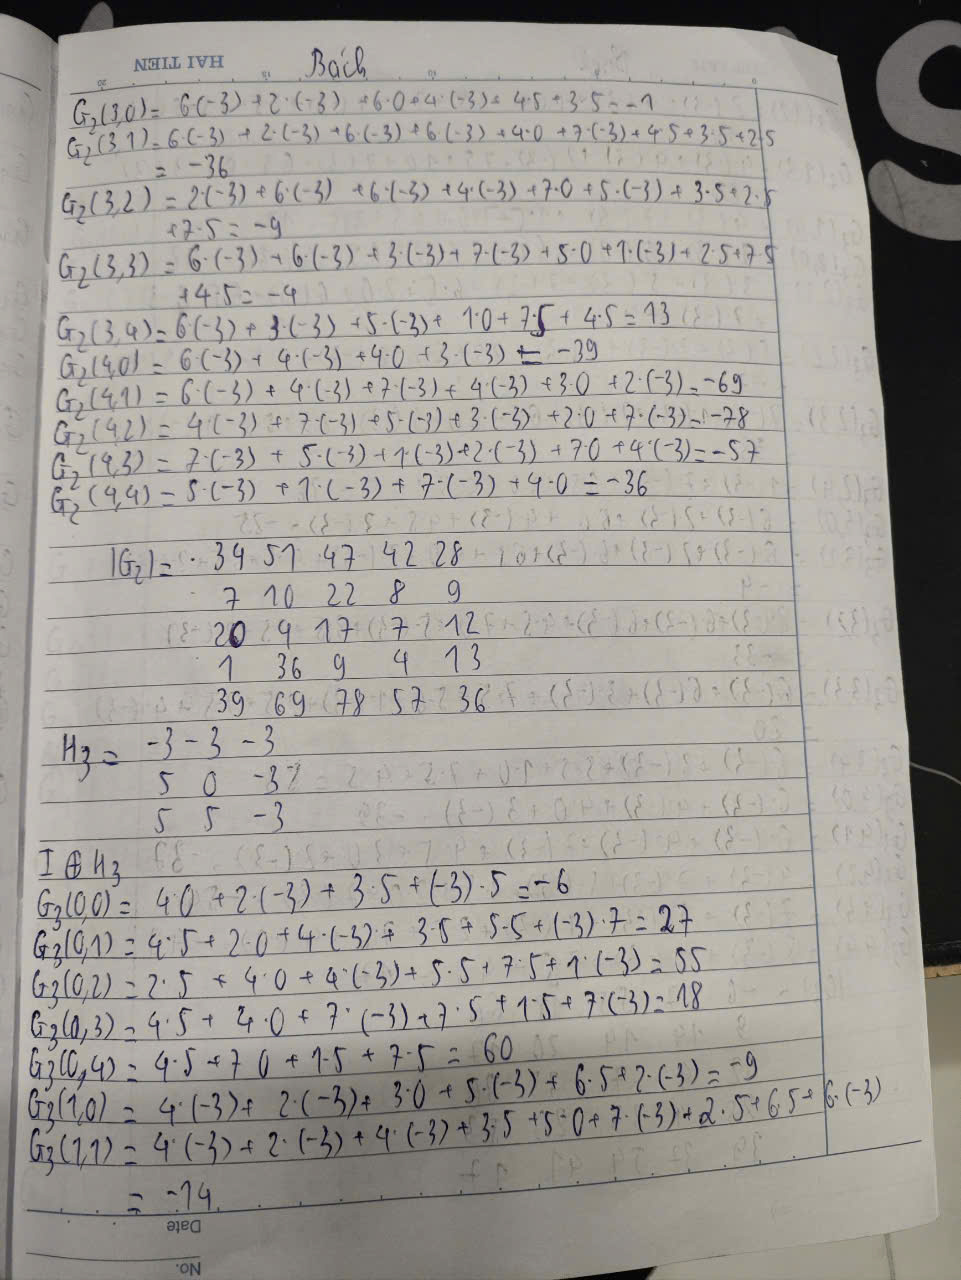 HAI TIEN
Bách
G2(3,0) = 6·(-3) + 2·(-3) + 6·0 + 4·(-3) + 4·5 + 3·5 = -1
G2(3,1) = 6·(-3) + 2·(-3) + 6·(-3) + 6·(-3) + 4·0 + 7·(-3) + 4·5 + 3·5 + 2·5
= -36
G2(3,2) = 2·(-3) + 6·(-3) + 6·(-3) + 4·(-3) + 7·0 + 5·(-3) + 3·5 + 2·5
+7·5 = -9
G2(3,3) = 6·(-3) + 6·(-3) + 3·(-3) + 7·(-3) + 5·0 + 1·(-3) + 2·5 + 7·5
+4·5 = -4
G2(3,4) = 6·(-3) + 3·(-3) + 5·(-3) + 1·0 + 7·5 + 4·5 = 13
G2(4,0) = 6·(-3) + 4·(-3) + 4·0 + 3·(-3) = -39
G2(4,1) = 6·(-3) + 4·(-3) + 7·(-3) + 4·(-3) + 3·0 + 2·(-3) = -69
G2(4,2) = 4·(-3) + 7·(-3) + 5·(-3) + 3·(-3) + 2·0 + 7·(-3) = -78
G2(4,3) = 7·(-3) + 5·(-3) + 1·(-3) + 2·(-3) + 7·0 + 4·(-3) = -57
G2(4,4) = 5·(-3) + 1·(-3) + 7·(-3) + 4·0 = -36
|G2| = 34 51 47 42 28
7 10 22 8 9
20 4 17 7 12
1 36 9 4 13
39 69 78 57 36
H3 = -3 -3 -3
5 0 -3
5 5 -3
I ⊕ H3
G3(0,0) = 4·0 + 2·(-3) + 3·5 + (-3)·5 = -6
G3(0,1) = 4·5 + 2·0 + 4·(-3) + 3·5 + 5·5 + (-3)·7 = 27
G3(0,2) = 2·5 + 4·0 + 4·(-3) + 5·5 + 7·5 + 1·(-3) = 55
G3(0,3) = 4·5 + 4·0 + 7·(-3) + 7·5 + 1·5 + 7·(-3) = 18
G3(0,4) = 4·5 + 7·0 + 1·5 + 7·5 = 60
G3(1,0) = 4·(-3) + 2·(-3) + 3·0 + 5·(-3) + 6·5 + 2·(-3) = -9
G3(1,1) = 4·(-3) + 2·(-3) + 4·(-3) + 3·5 + 5·0 + 7·(-3) + 2·5 + 6·5 + 6·(-3)
= -14
Date
No.